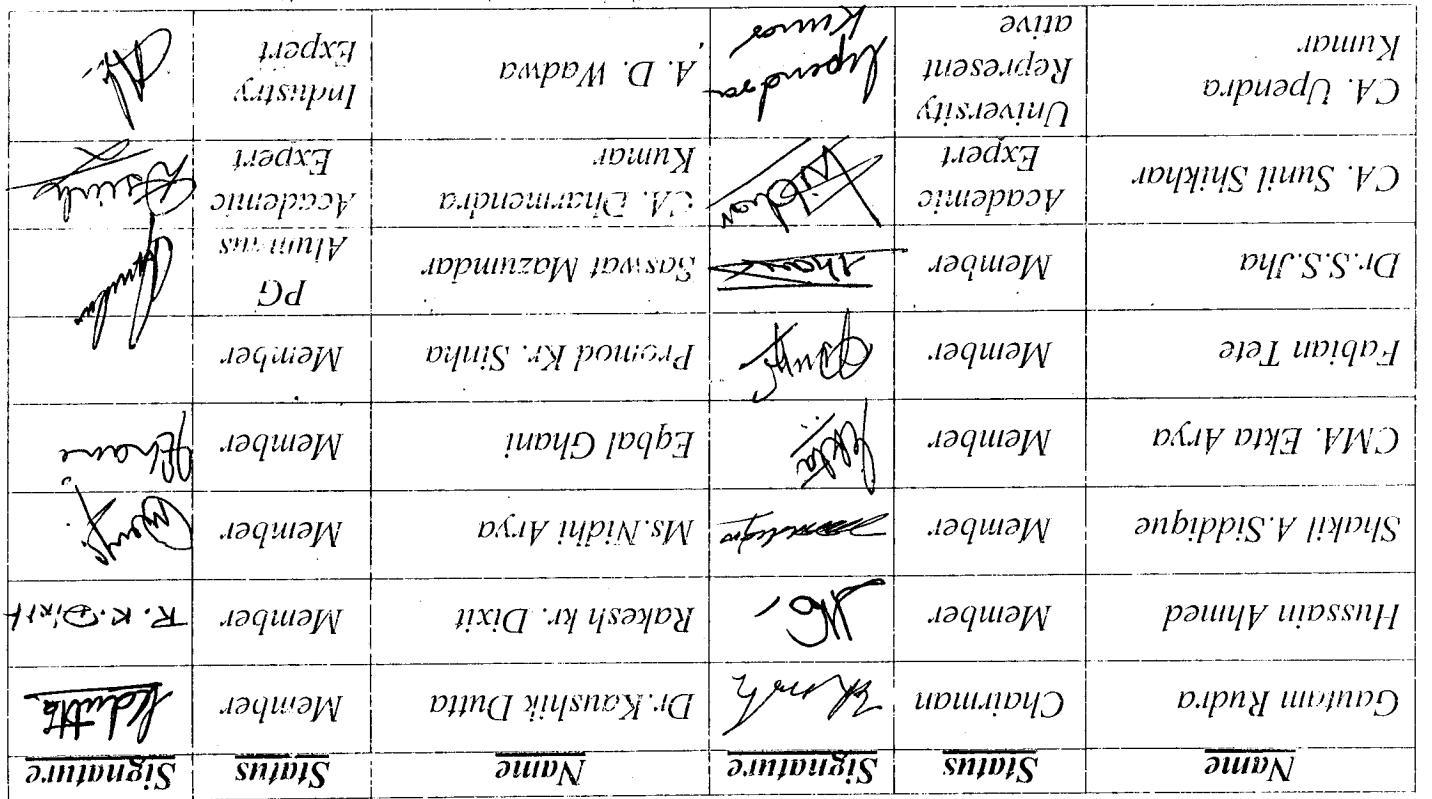 Name Status Signature Name Status Signature
Gautam Rudra Chairman Dr.Kaushik Dutta Member kdutta
Hussain Ahmed Member Rakesh kr. Dixit Member R.K.Dixit
Shakil A.Siddique Member Ms.Nidhi Arya Member
CMA. Ekta Arya Member Ekta Eqbal Ghani Member
Fabian Tete Member Promod Kr. Sinha Member
Dr.S.S.Jha Member Saswat Mazumdar PG
Alumnus
CA. Sunil Shikhar Academic CA. Dharmendra Academic
Expert Kumar Expert
CA. Upendra University Upendra A. D. Wadwa Industry
Kumar Represent Kumar Expert
ative